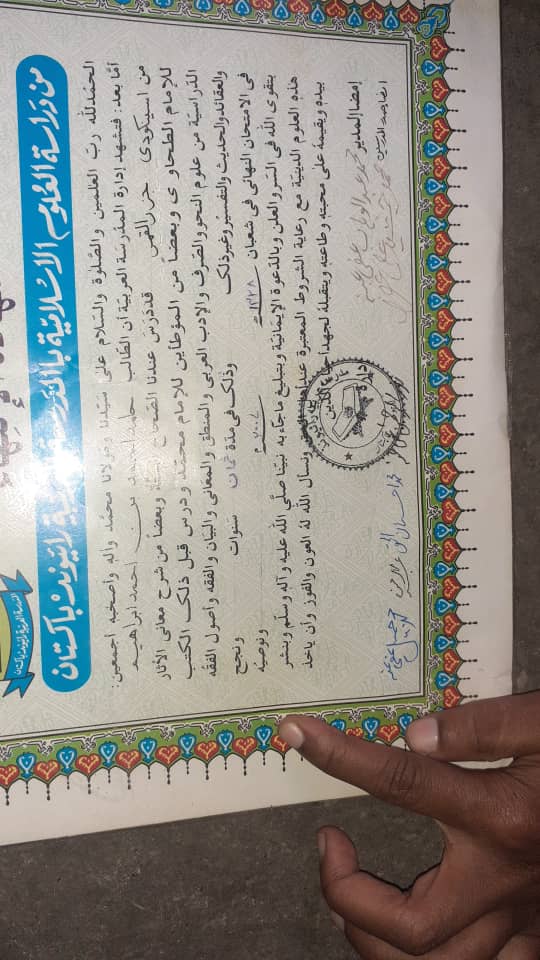 من دراسة العلوم الاسلامية بالمدرسة العربية لائيوند باكستان
الحمد لله ربّ العلمين والصّلوة والسّلام على سيّدنا ومولانا محمّد وآله وأصحبه اجمعين:
أمّا بعد: فتشهد إدارة المدرسة العربية أن الطالب بن احمد ابراهيم
من جزر القمر قد درس عندنا الصحاح الستة وبعضاً من شرح معاني الآثار
للإمام الطحاوى وبعضاً من المؤطأين للإمام محمّد، ودرس قبل ذلك الكتب
الدراسية من علوم النحو والصّرف والإدب العربى والمنطق والمعانى والبيان والفقه وأصول الفقه
والعقائد والحديث والتفسير وغير ذلك وذلك فى مدّة ثمان سنوات ونجح
فى الامتحان النهائى فى شعبان ١٤٢٨ه ٢٠٠٧م ونوصيه
بتقوى الله فى السّر والعلن وبالدّعوة الإيمانية وبتبليغ ماجاء به نبيّنا صلّى الله عليه وآله وسلّم وبنشر
هذه العلوم الدينية مع رعاية الشروط المعتبرة ونسأل الله له العون والفوز وأن يأخذ
بيده ويقيمه على محبته وطاعته ويتقبله لجهد الدّين
إمضا المدير